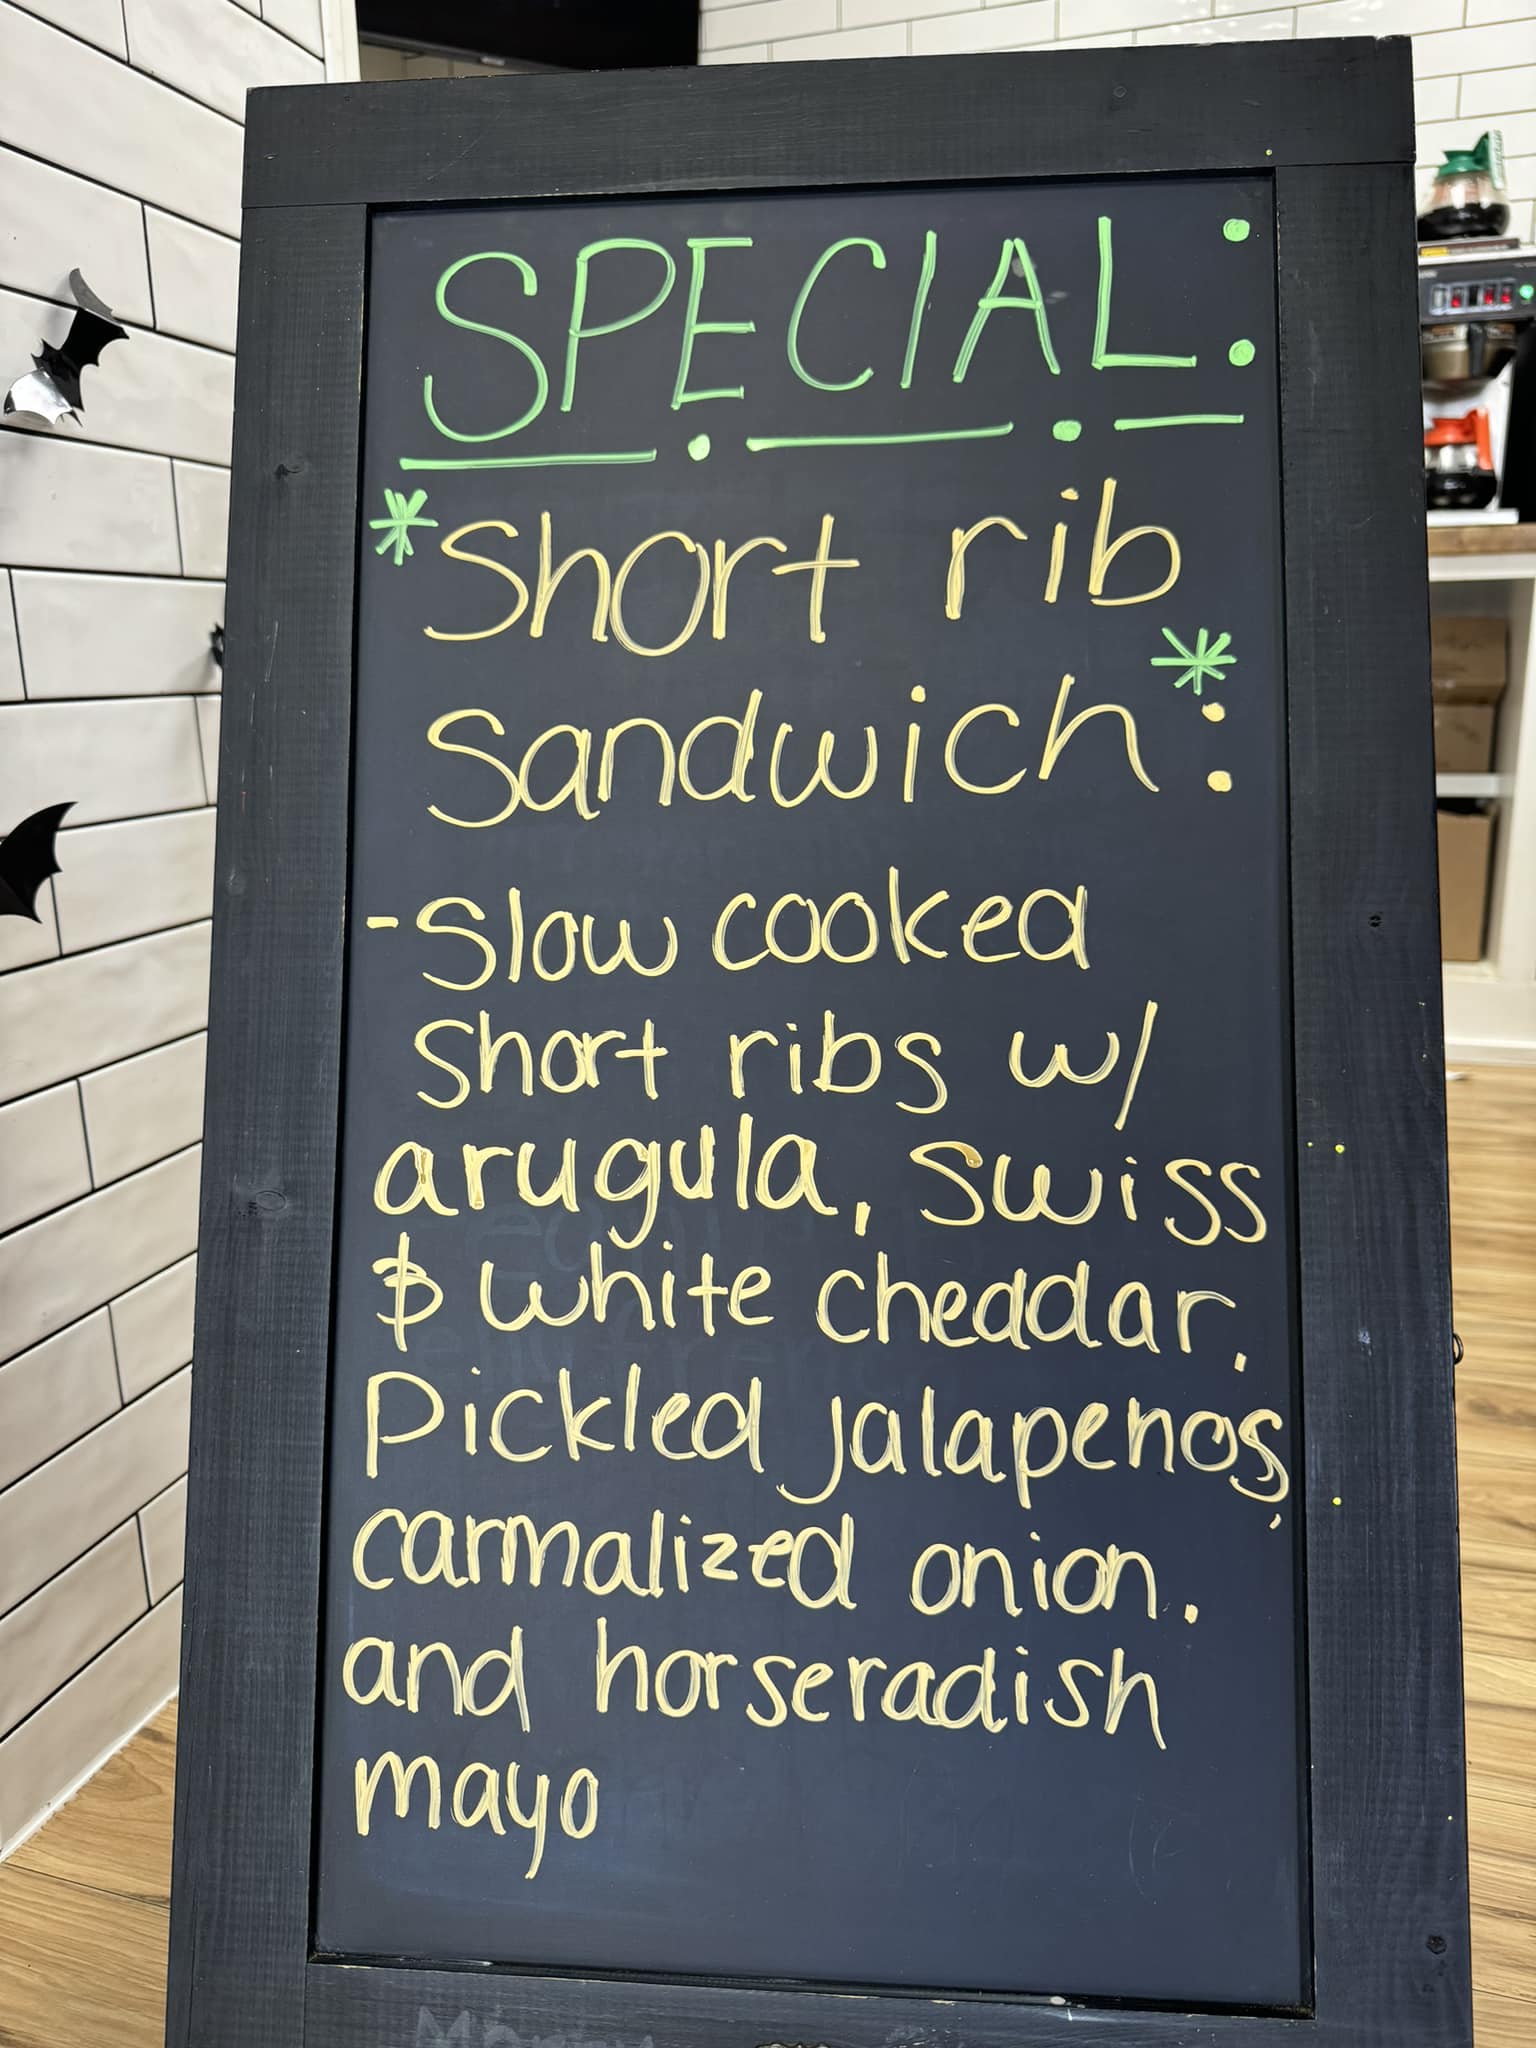 SPECIAL:
*Short rib
Sandwich*:
-Slow cooked
Short ribs w/
arugula, swiss
& white cheddar,
Pickled jalapenos,
carmalized onion,
and horseradish
mayo